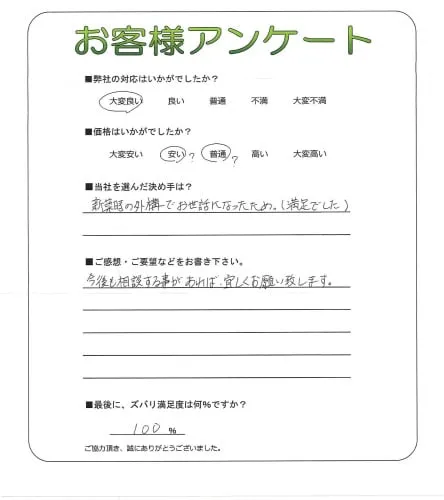 お客様アンケート
■弊社の対応はいかがでしたか?
大変良い 良い 普通 不満 大変不満
■価格はいかがでしたか?
大変安い 安い? 普通? 高い 大変高い
■当社を選んだ決め手は?
新築時の外構でお世話になったため。(満足でした)
■ご感想・ご要望などをお書き下さい。
今後も相談する事があれば、宜しくお願い致します。
■最後に、ズバリ満足度は何%ですか?
100 %
ご協力頂き、誠にありがとうございました。